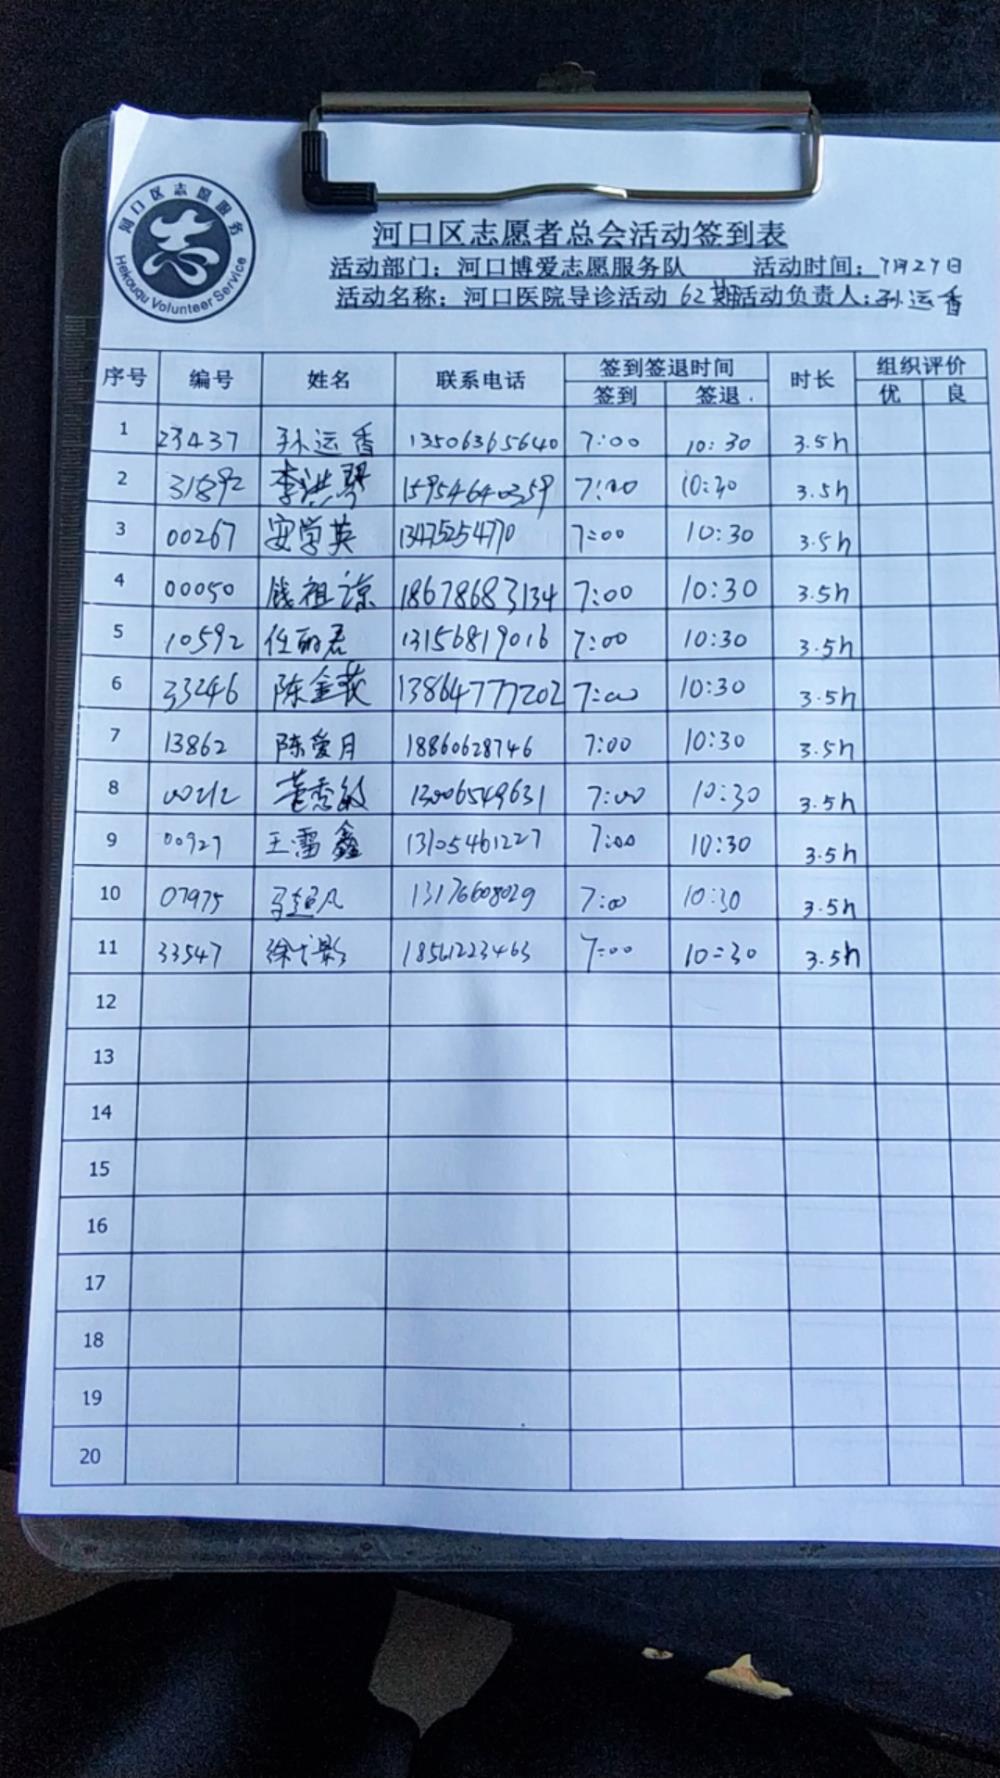 河口区志愿服务
Hekouqu Volunteer Service
河口区志愿者总会活动签到表
活动部门：河口博爱志愿服务队 活动时间：7月27日
活动名称：河口医院导诊活动 62期活动负责人：孙运香
序号 编号 姓名 联系电话 签到签退时间 时长 组织评价
签到 签退 优 良
1 23437 孙运香 13506365640 7:00 10:30 3.5h
2 31892 李洪琴 15954640259 7:00 10:30 3.5h
3 00267 安学英 13475254770 7:00 10:30 3.5h
4 00050 钱祖谅 18678683134 7:00 10:30 3.5h
5 10592 任丽君 13156819016 7:00 10:30 3.5h
6 33246 陈金荻 13864777202 7:00 10:30 3.5h
7 13862 陈爱月 18860628746 7:00 10:30 3.5h
8 00212 董秀敏 13006549631 7:00 10:30 3.5h
9 00927 王雷鑫 13105461227 7:00 10:30 3.5h
10 07975 马超凡 13176608029 7:00 10:30 3.5h
11 33547 徐 影 18561223463 7:00 10:30 3.5h
12
13
14
15
16
17
18
19
20